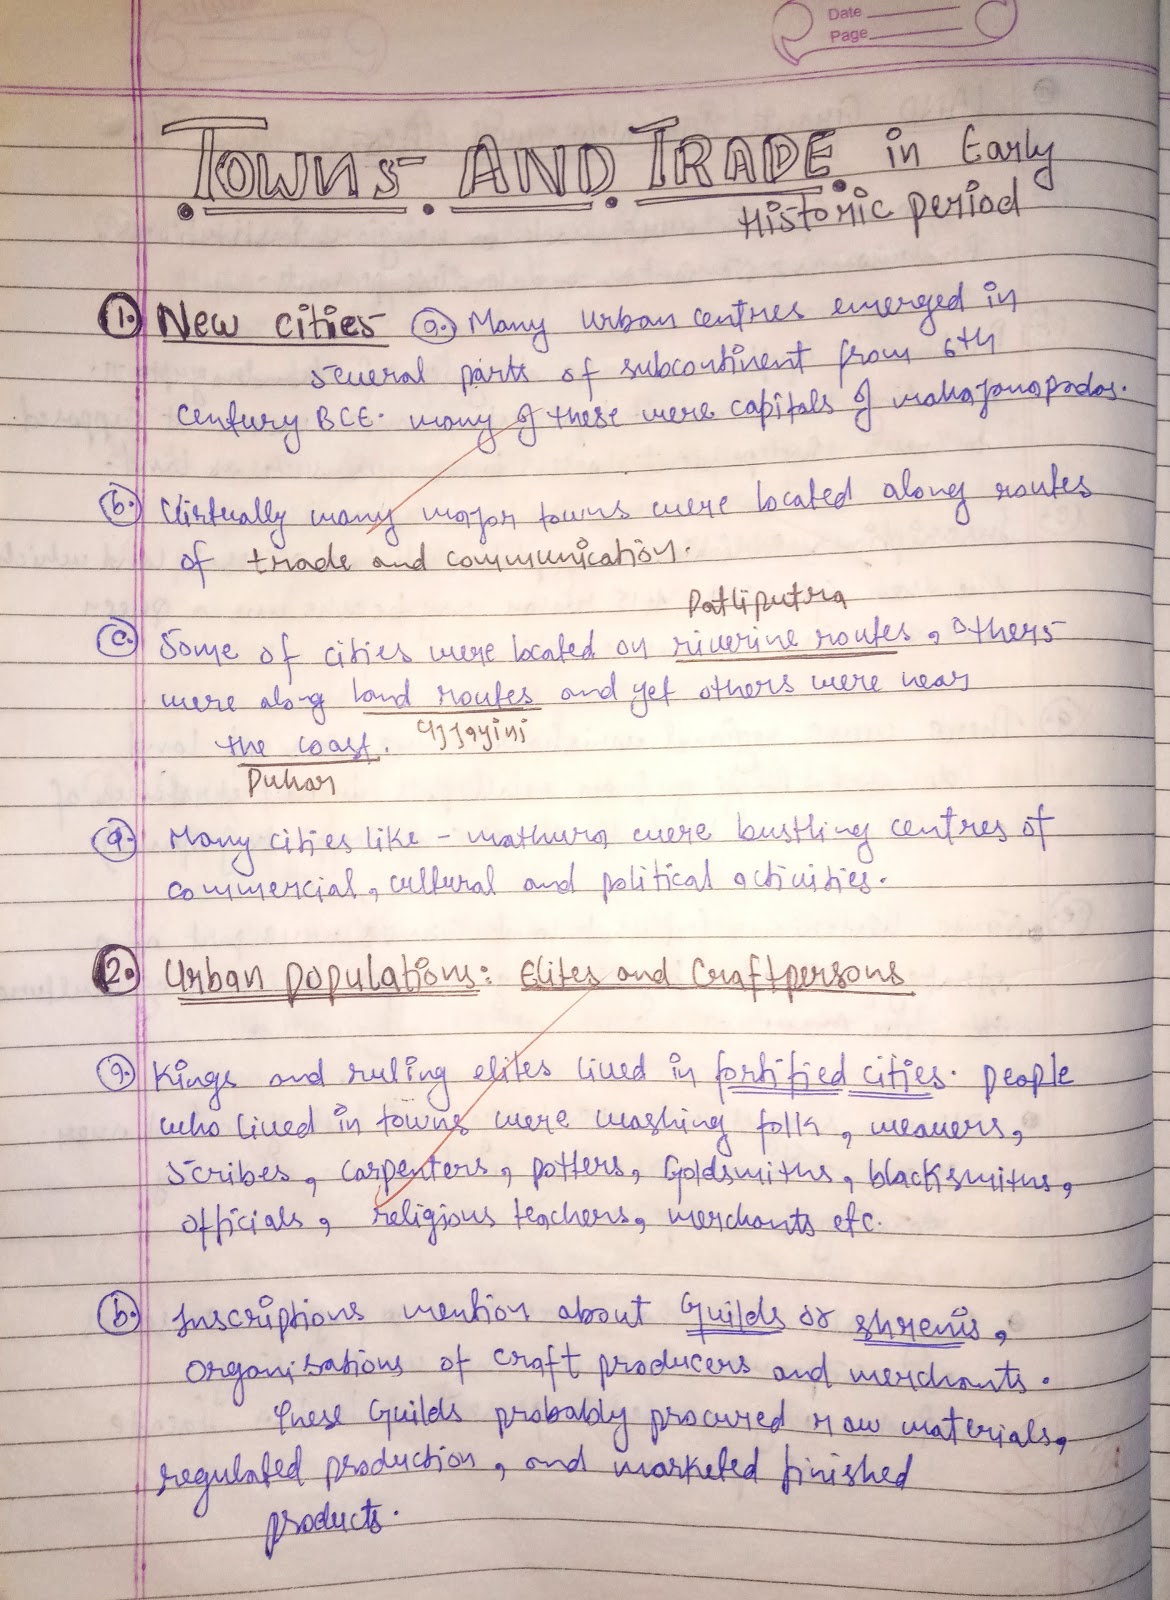 Date
Page
TOWNS AND TRADE in Early
Historic period
1. New cities a. Many urban centres emerged in
several parts of subcontinent from 6th
century BCE. many of these were capitals of mahajanapadas.
b. Virtually many major towns were located along routes
of trade and communication.
Patliputra
c. Some of cities were located on riverine routes, others
were along land routes and yet others were near
Ujjayini
the coast.
Puhar
d. Many cities like - mathura were bustling centres of
commercial, cultural and political activities.
2. Urban populations: Elites and Craftpersons
a. Kings and ruling elites lived in fortified cities. people
who lived in towns were washing folk, weavers,
scribes, carpenters, potters, Goldsmiths, blacksmiths,
officials, religious teachers, merchants etc.
b. Inscriptions mention about Guilds or shrenis,
organisations of craft producers and merchants.
These Guilds probably procured raw materials,
regulated production, and marketed finished
products.